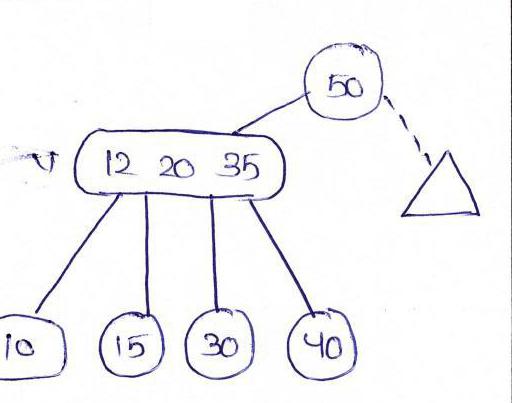 50
12 20 35
10 15 30 40